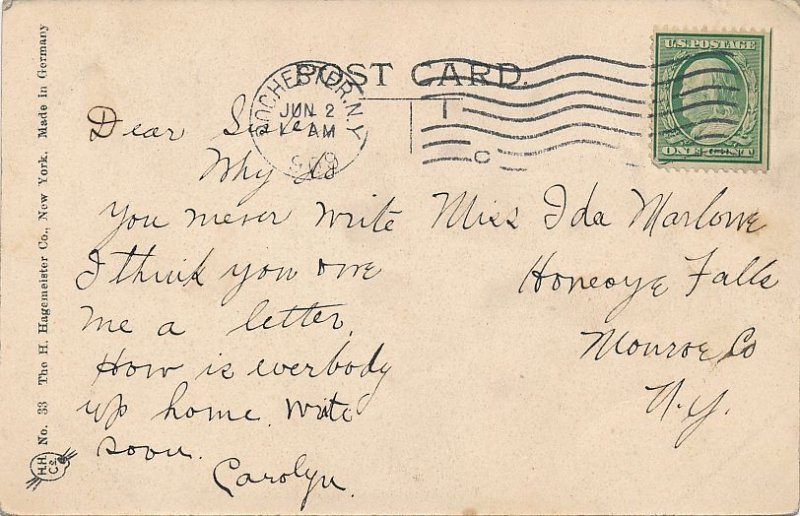 POST CARD.
ROCHESTER, N.Y.
JUN 2
AM
1909
T
C
U.S. POSTAGE
ONE CENT
Dear Sister
Why do
you never write
I think you owe
me a letter.
How is everbody
up home. Write
soon.
Carolyn.
Miss Ida Marlowe
Honeoye Falls
Monroe Co
N.Y.
H.H. Co. No. 33 The H. Hagemeister Co., New York. Made in Germany